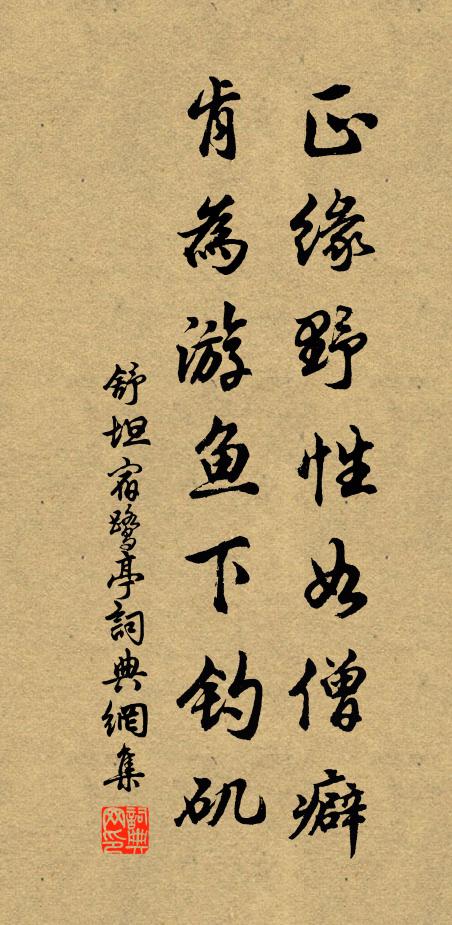 正缘野性如僧癖
肯為游鱼下钓矶
舒坦宿鹭亭詞典網集
詞典網印